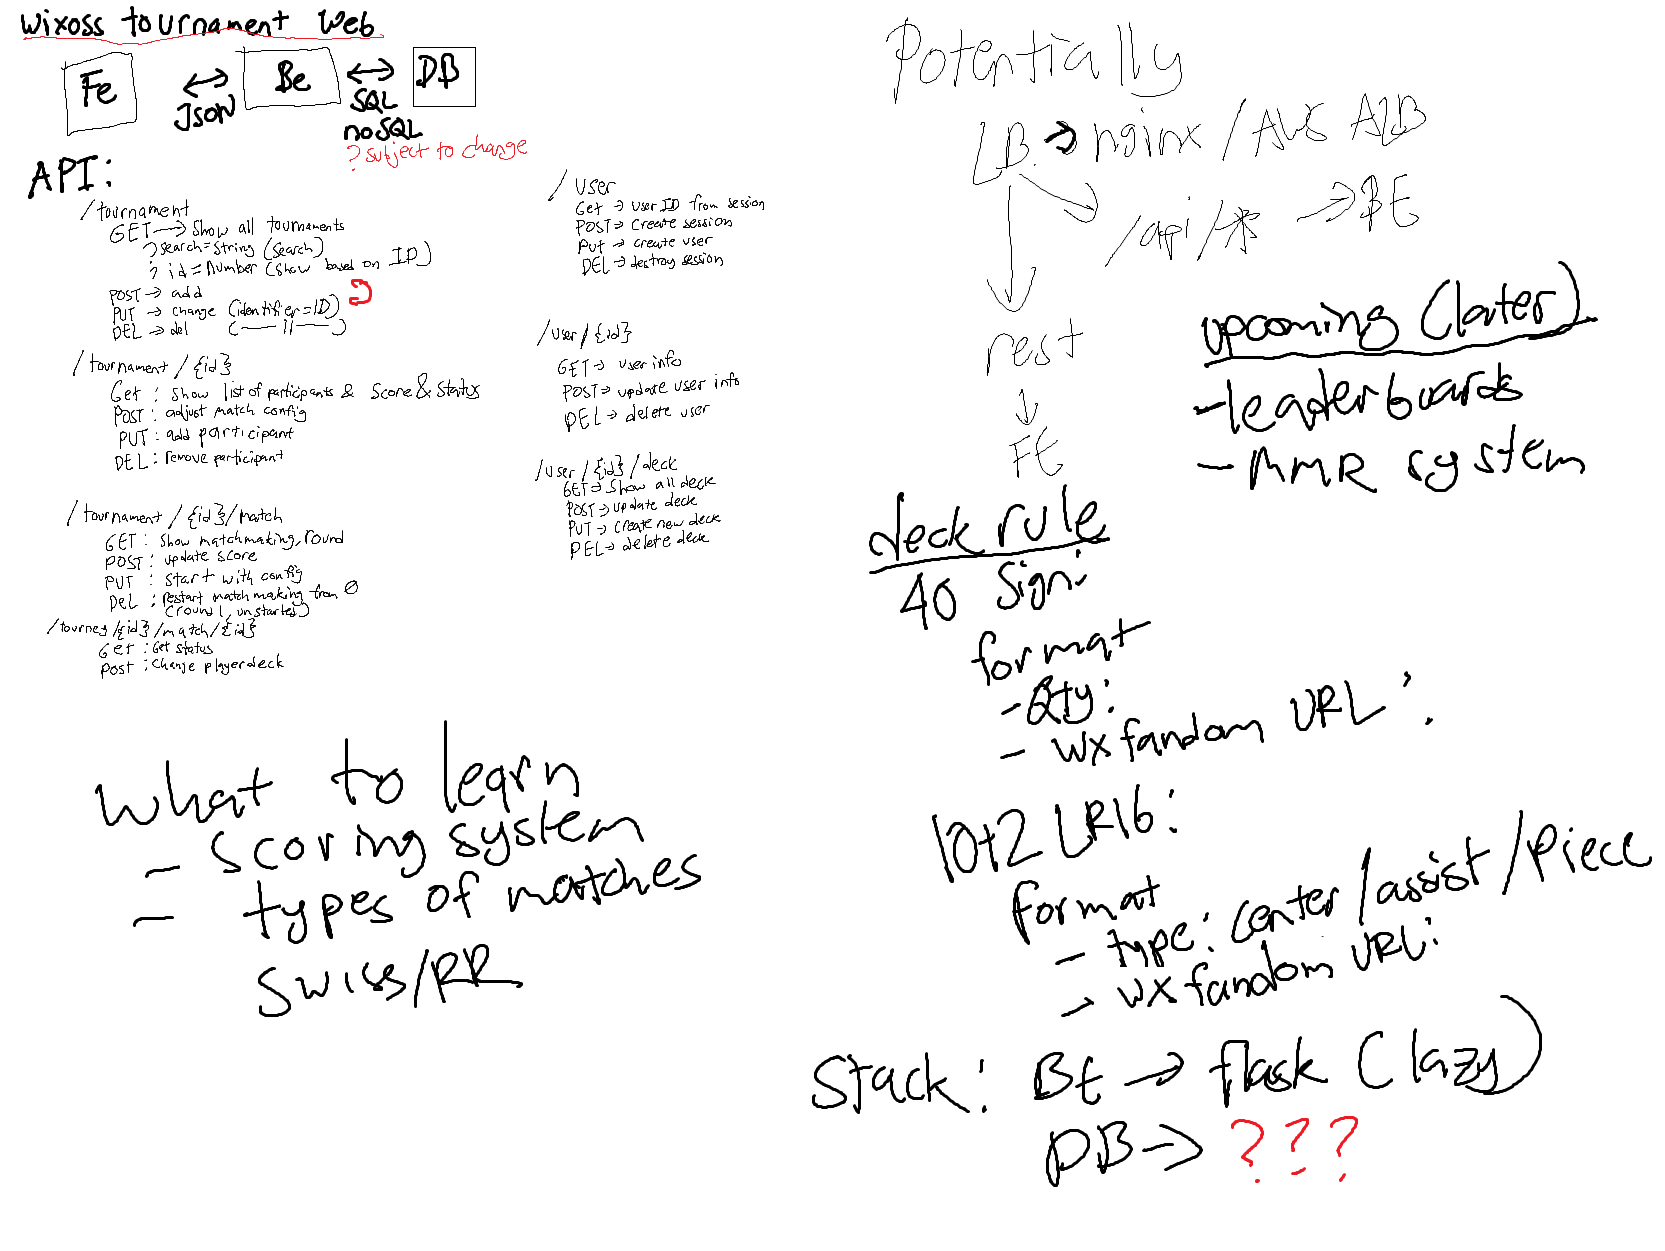 Wixoss tournament Web
Fe
JSON
Be
SQL
noSQL
DB
? subject to change
API:
/tournament
GET → Show all tournaments
?search=String (search)
? id = number (show based on ID)
POST → add
PUT → change (identifier = ID)
DEL → del (— 11 —)
/tournament/{id}
Get : Show list of participants & Score & Status
POST : adjust match config
PUT : add participant
DEL : remove participant
/tournament/{id}/match
GET : Show matchmaking, round
POST : update score
PUT : start with config
Del : Restart matchmaking from 0
(round 1, unstarted)
/tourney/{id}/match/{id}
Get : Get status
Post : Change player deck
/user
Get → user ID from session
POST → Create session
Put → create user
DEL → destroy session
/user/{id}
GET → user info
POST → update user info
DEL → delete user
/user/{id}/deck
GET → Show all deck
POST → update deck
PUT → create new deck
DEL → delete deck
What to learn
- Scoring system
- types of matches
Swiss/RR
Potentially
LB → nginx / AWS ALB
/api/* → BE
rest
FE
upcoming (later)
- leaderboards
- MMR system
deck rule
40 Signi
format
- Qty:
- WX fandom URL:
10+2 LRIG:
format
- type: center/assist/Piece
- WX fandom URL:
Stack: BE → flask (lazy)
DB → ???